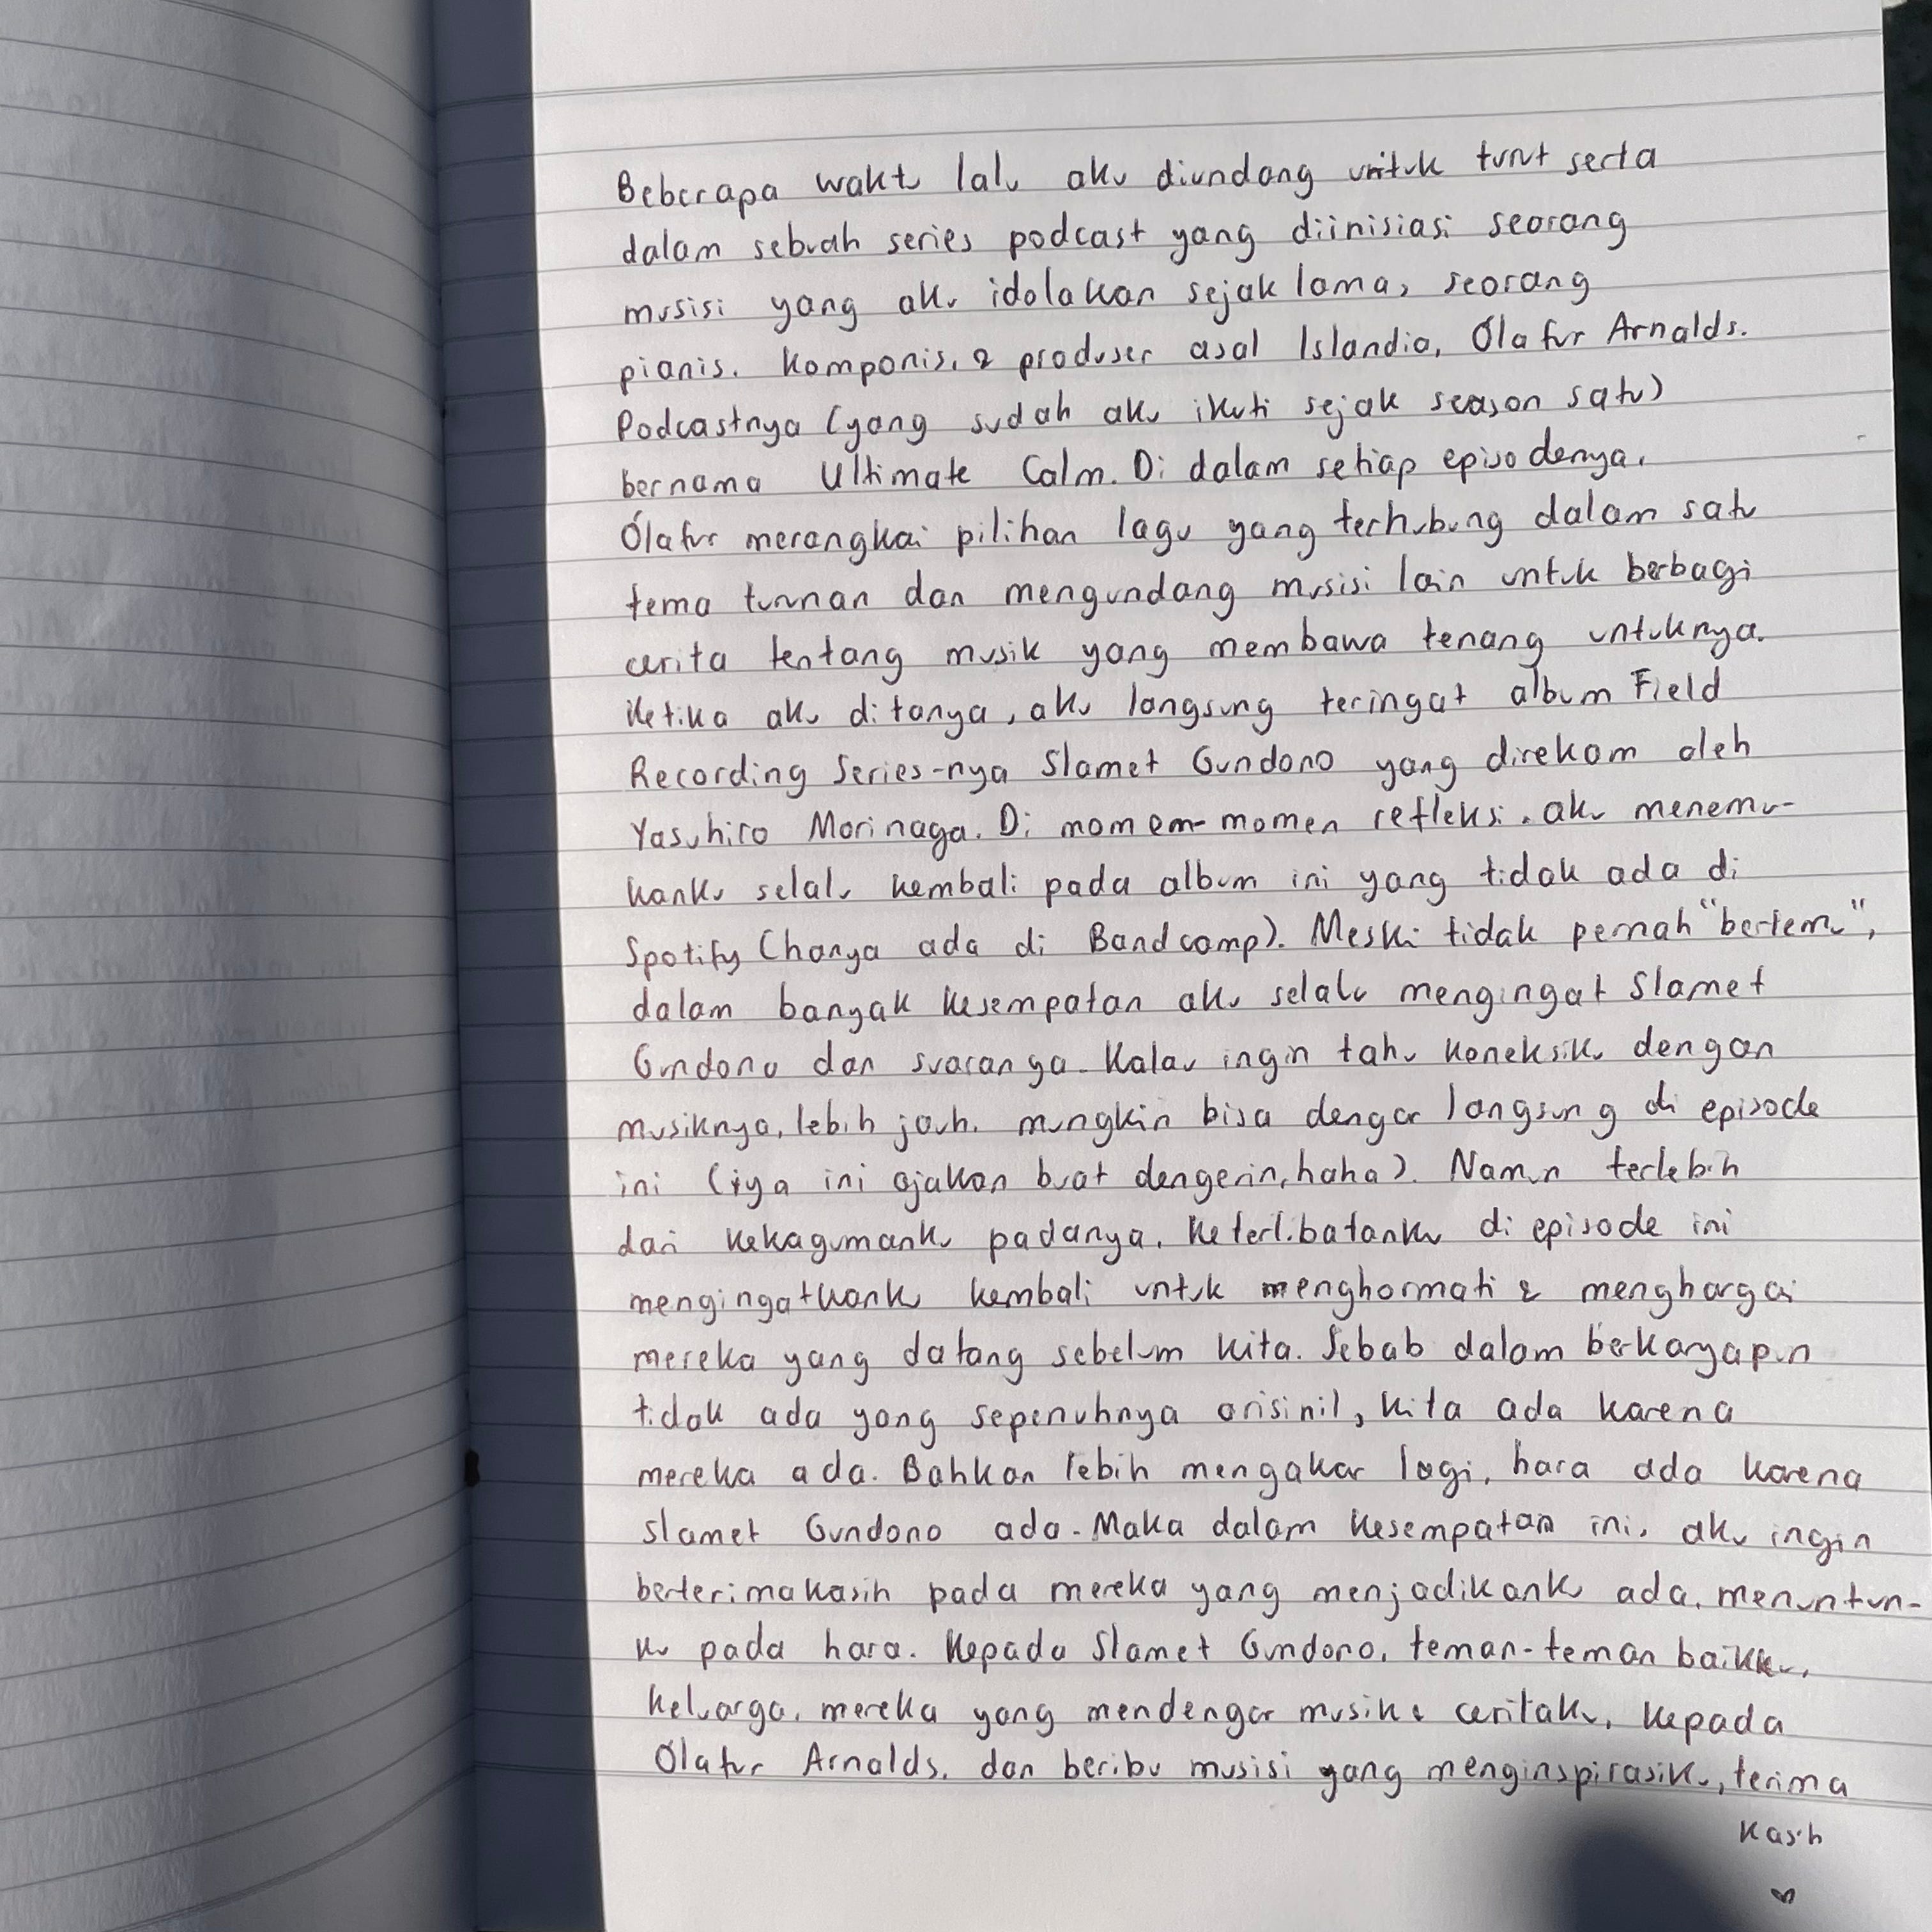 Beberapa waktu lalu aku diundang untuk turut serta
dalam sebuah series podcast yang diinisiasi seorang
musisi yang aku idolakan sejak lama, seorang
pianis, komponis, & produser asal Islandia, Ólafur Arnalds.
Podcastnya (yang sudah aku ikuti sejak season satu)
bernama Ultimate Calm. Di dalam setiap episodenya,
Ólafur merangkai pilihan lagu yang terhubung dalam satu
tema turunan dan mengundang musisi lain untuk berbagi
cerita tentang musik yang membawa tenang untuknya.
Ketika aku ditanya, aku langsung teringat album Field
Recording Series-nya Slamet Gundono yang direkam oleh
Yasuhiro Morinaga. Di momem-momen refleksi, aku menemu-
kanku selalu kembali pada album ini yang tidak ada di
Spotify (hanya ada di Bandcamp). Meski tidak pernah "bertemu",
dalam banyak kesempatan aku selalu mengingat Slamet
Gundono dan suaranya. Kalau ingin tahu koneksiku dengan
musiknya, lebih jauh, mungkin bisa dengar langsung di episode
ini (iya ini ajakan buat dengerin, haha). Namun terlebih
dari kekagumanku padanya, keterlibatanku di episode ini
mengingatkanku kembali untuk menghormati & menghargai
mereka yang datang sebelum kita. Sebab dalam berkaryapun
tidak ada yang sepenuhnya orisinil, kita ada karena
mereka ada. Bahkan lebih mengakar lagi, hara ada karena
Slamet Gundono ada. Maka dalam kesempatan ini, aku ingin
berterimakasih pada mereka yang menjadikanku ada, menuntun-
ku pada hara. Kepada Slamet Gundono, teman-teman baikku,
keluarga, mereka yang mendengar musik & ceritaku, kepada
Ólafur Arnalds, dan beribu musisi yang menginspirasiku, terima
kasih